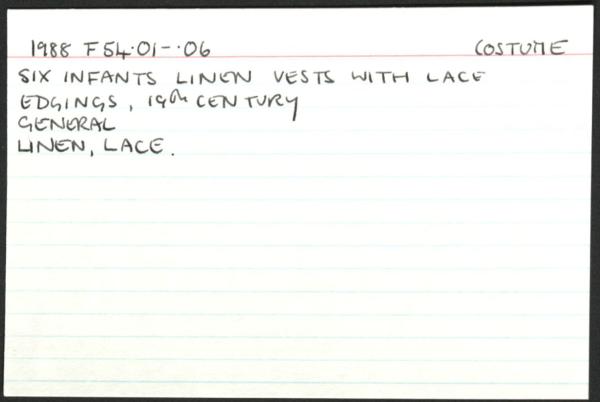 1988 F54.01-.06 COSTUME
SIX INFANTS LINEN VESTS WITH LACE
EDGINGS, 19th CENTURY
GENERAL
LINEN, LACE.